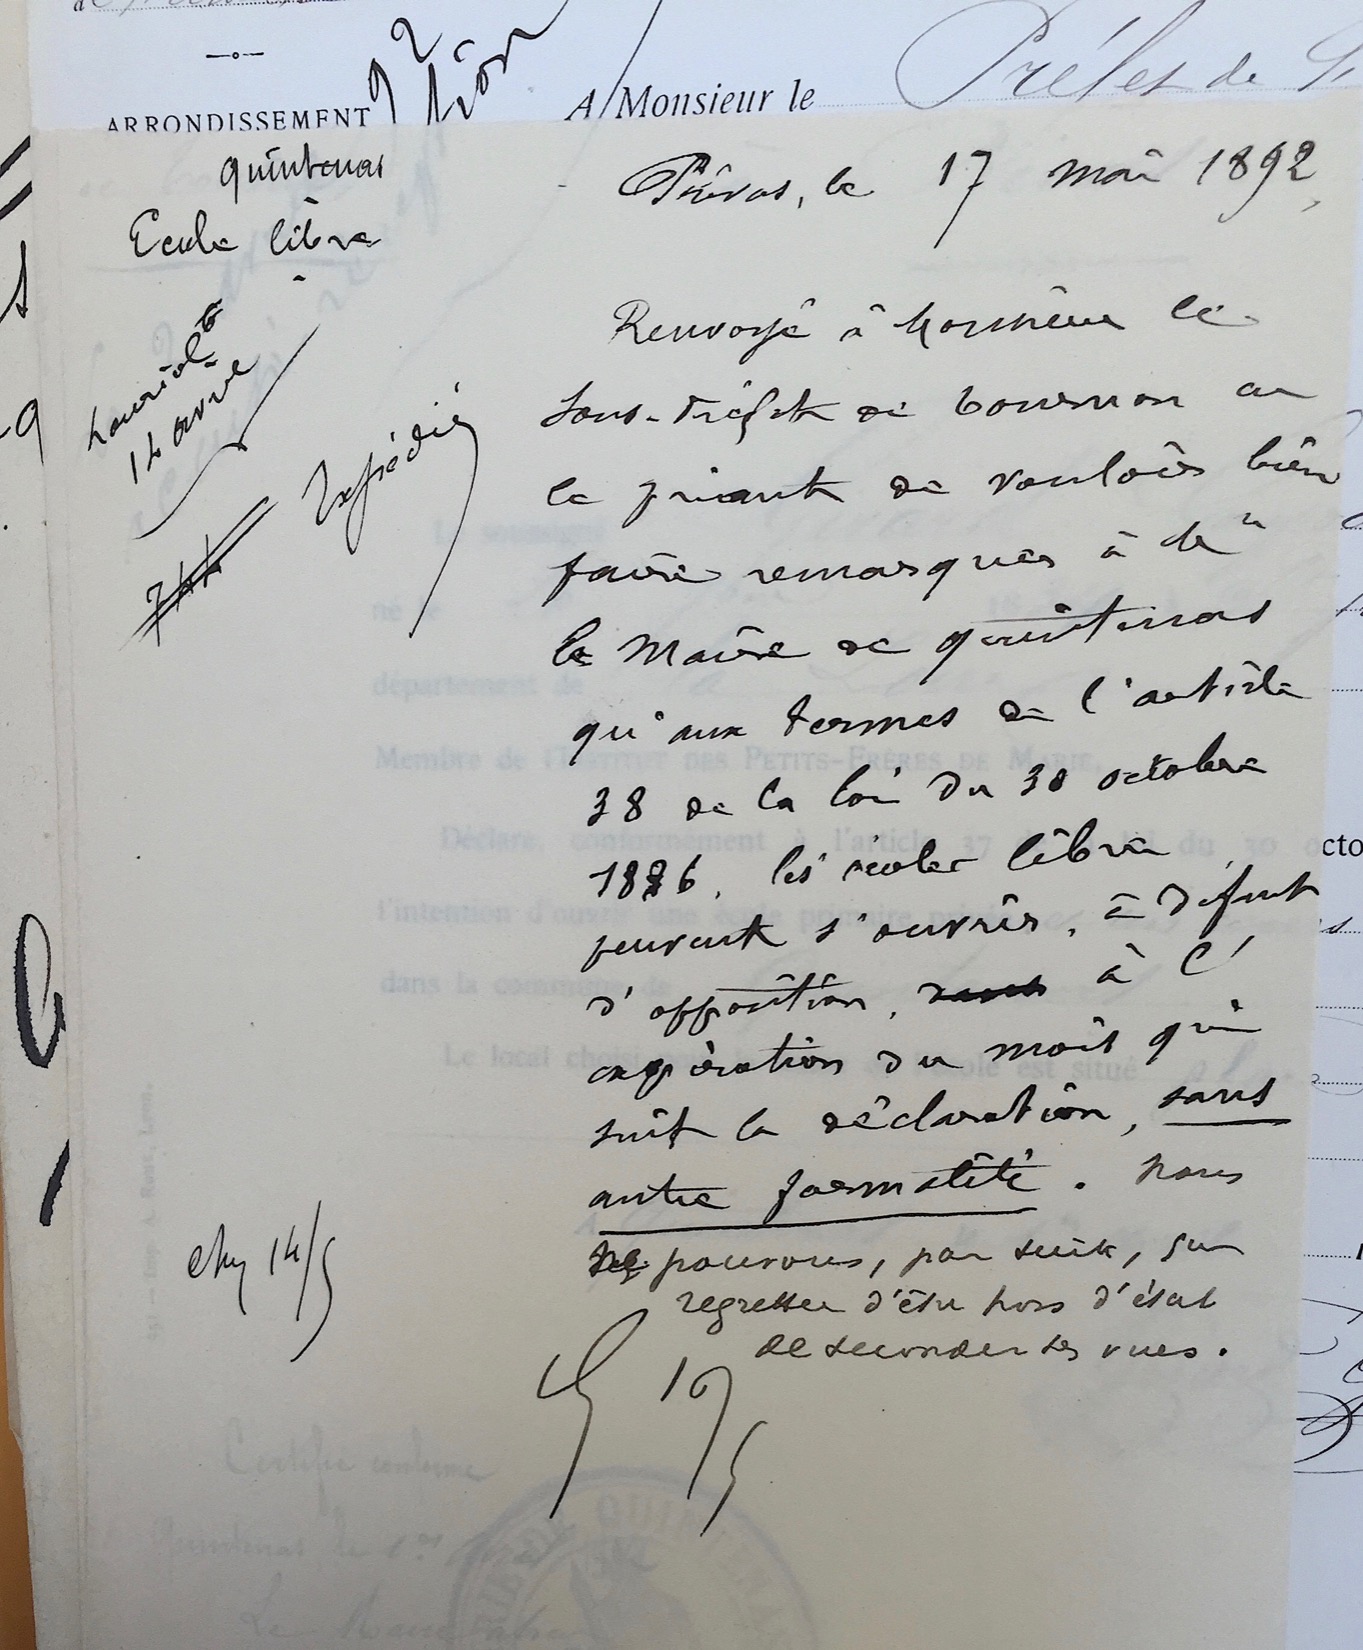 ARRONDISSEMENT
A Monsieur le Préfet de
Quintenas
Ecole libre
Privas, le 17 mai 1892,
Expédié
Renvoyé à Monsieur le
Sous-Préfet de Tournon en
le priant de vouloir bien
faire remarquer à M
le Maire de Quintenas
qu'aux termes de l'article
38 de la loi du 30 octobre
1886, les écoles libres
peuvent s'ouvrir, à défaut
d'opposition, à l'
expiration du mois qui
suit la déclaration, sans
autre formalité. Nous
ne pouvons, par suite, que
regretter d'être hors d'état
de seconder ses vues.
14/5
19/5
Le soussigné
né le
département de
Membre de l'INSTITUT DES PETITS-FRÈRES DE MARIE,
Déclare, conformément à l'article 37 de la loi du 30 octo
l'intention d'ouvrir une école primaire privée
dans la commune de
Le local choisi pour l'école est situé
Certifié conforme
Quintenas le
Le Maire